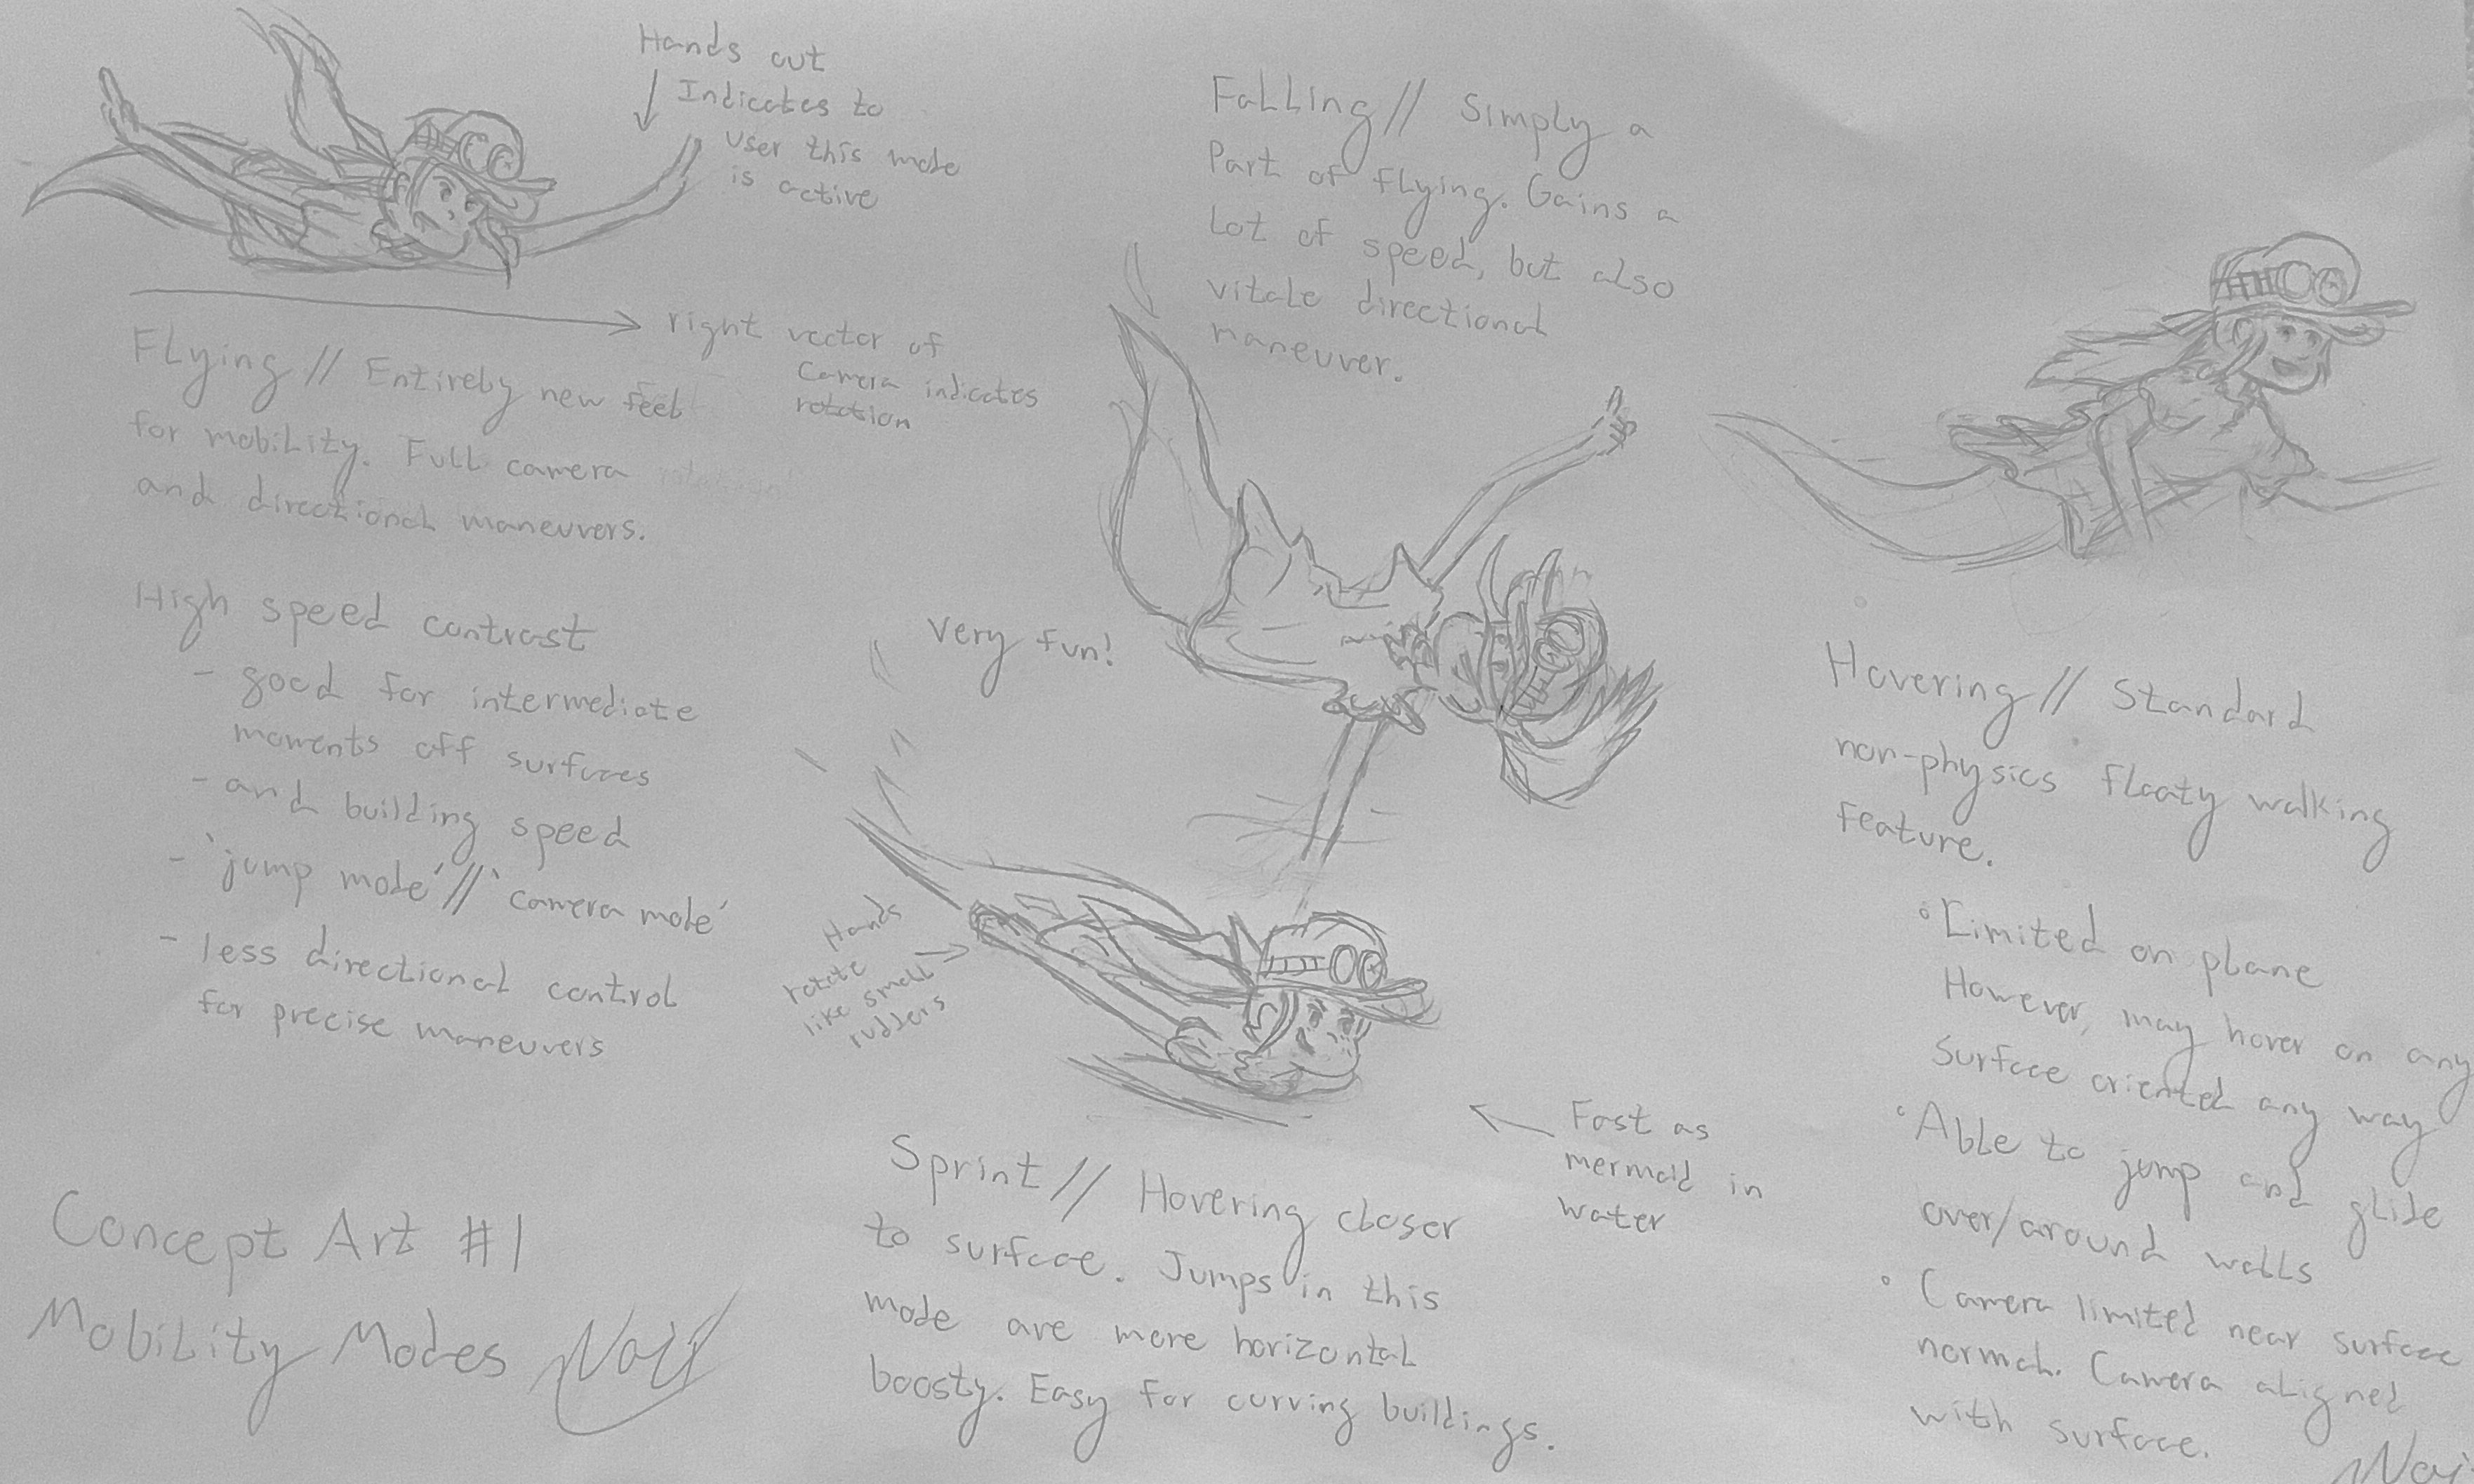 Hands out
Indicates to
user this mode
is active
right vector of
camera indicates
rotation
Flying // Entirely new feel
for mobility. Full camera
and directional maneuvers.
High speed contrast
- good for intermediate
moments off surfaces
- and building speed
- 'jump mode' // 'camera mode'
- less directional control
for precise maneuvers
Concept Art #1
Mobility Modes
Falling // Simply a
Part of flying. Gains a
Lot of speed, but also
vitale directional
maneuver.
Very fun!
Hands
rotate
like small
rudders
Fast as
mermaid in
water
Sprint // Hovering closer
to surface. Jumps in this
mode are more horizontal
boosty. Easy for curving buildings.
Hovering // Standard
non-physics floaty walking
feature.
° Limited on plane
However, may hover on any
surface oriented any way
° Able to jump and glide
over/around walls
° Camera limited near surface
normal. Camera aligned
with surface.